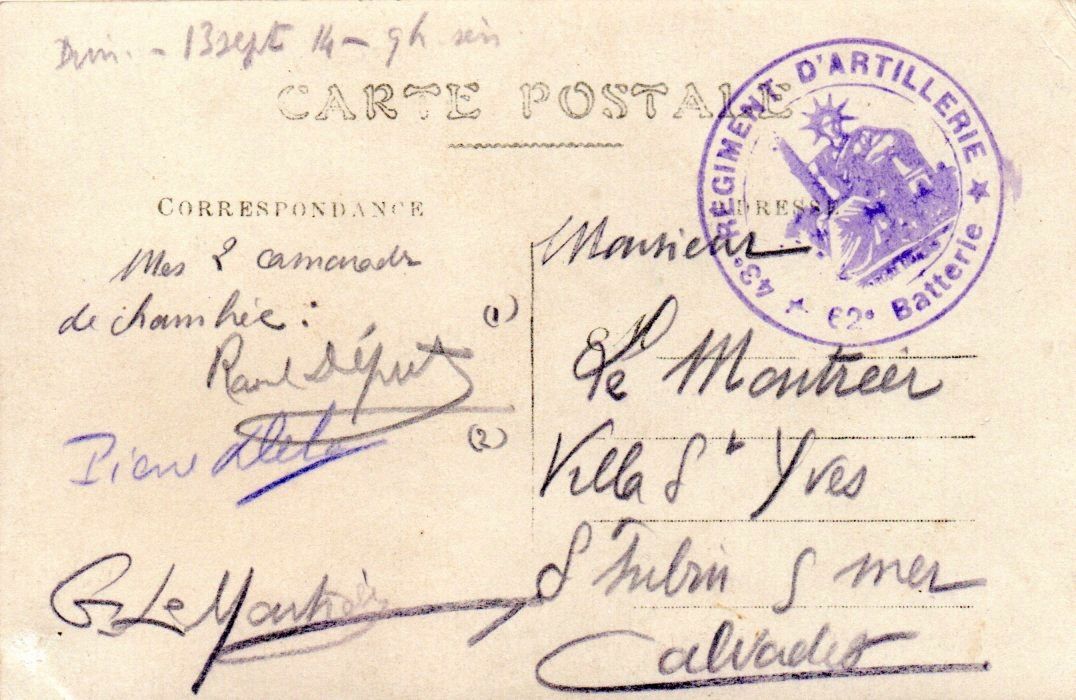 Dim. - 13 sept 14 - 9h soir
CARTE POSTALE
43e RÉGIMENT D'ARTILLERIE
62e Batterie
CORRESPONDANCE
Mes 2 camarades
de chambrée :
(1)
Raoul Députz
(2)
Pierre
G. Le Montréer
ADRESSE
Monsieur
Le Montréer
Villa St Yves
St Aubin s mer
Calvados